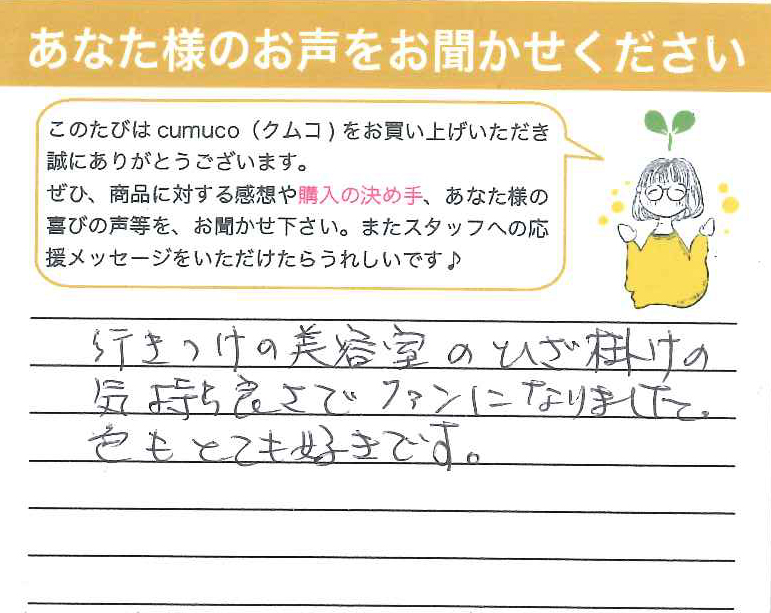 あなた様のお声をお聞かせください
このたびは cumuco（クムコ）をお買い上げいただき
誠にありがとうございます。
ぜひ、商品に対する感想や購入の決め手、あなた様の
喜びの声等を、お聞かせ下さい。またスタッフへの応
援メッセージをいただけたらうれしいです♪
行きつけの美容室のひざ掛けの
気持ち良さでファンになりました。
色もとても好きです。